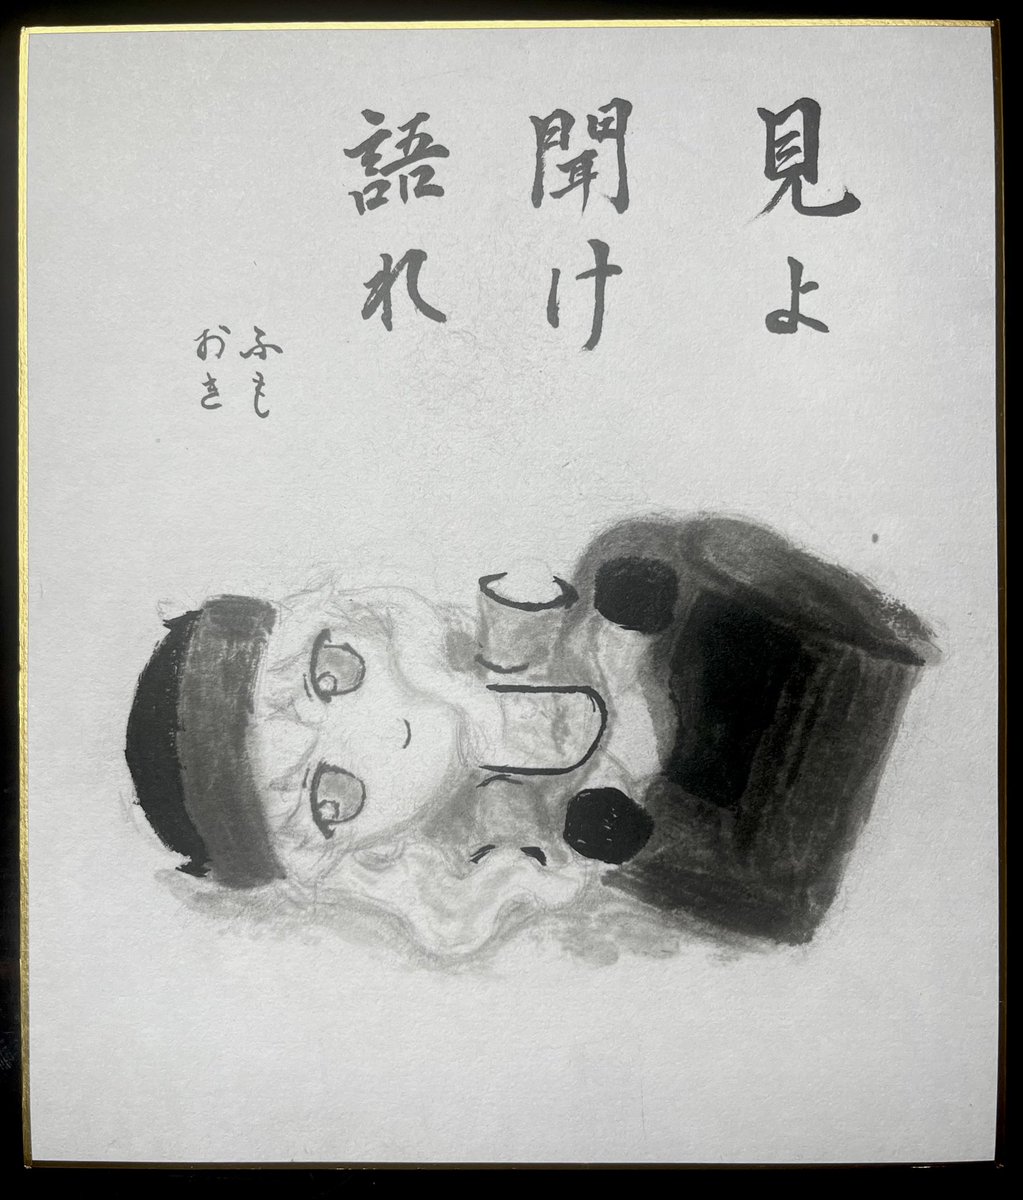 見よ
聞け
語れ
ふも
おき